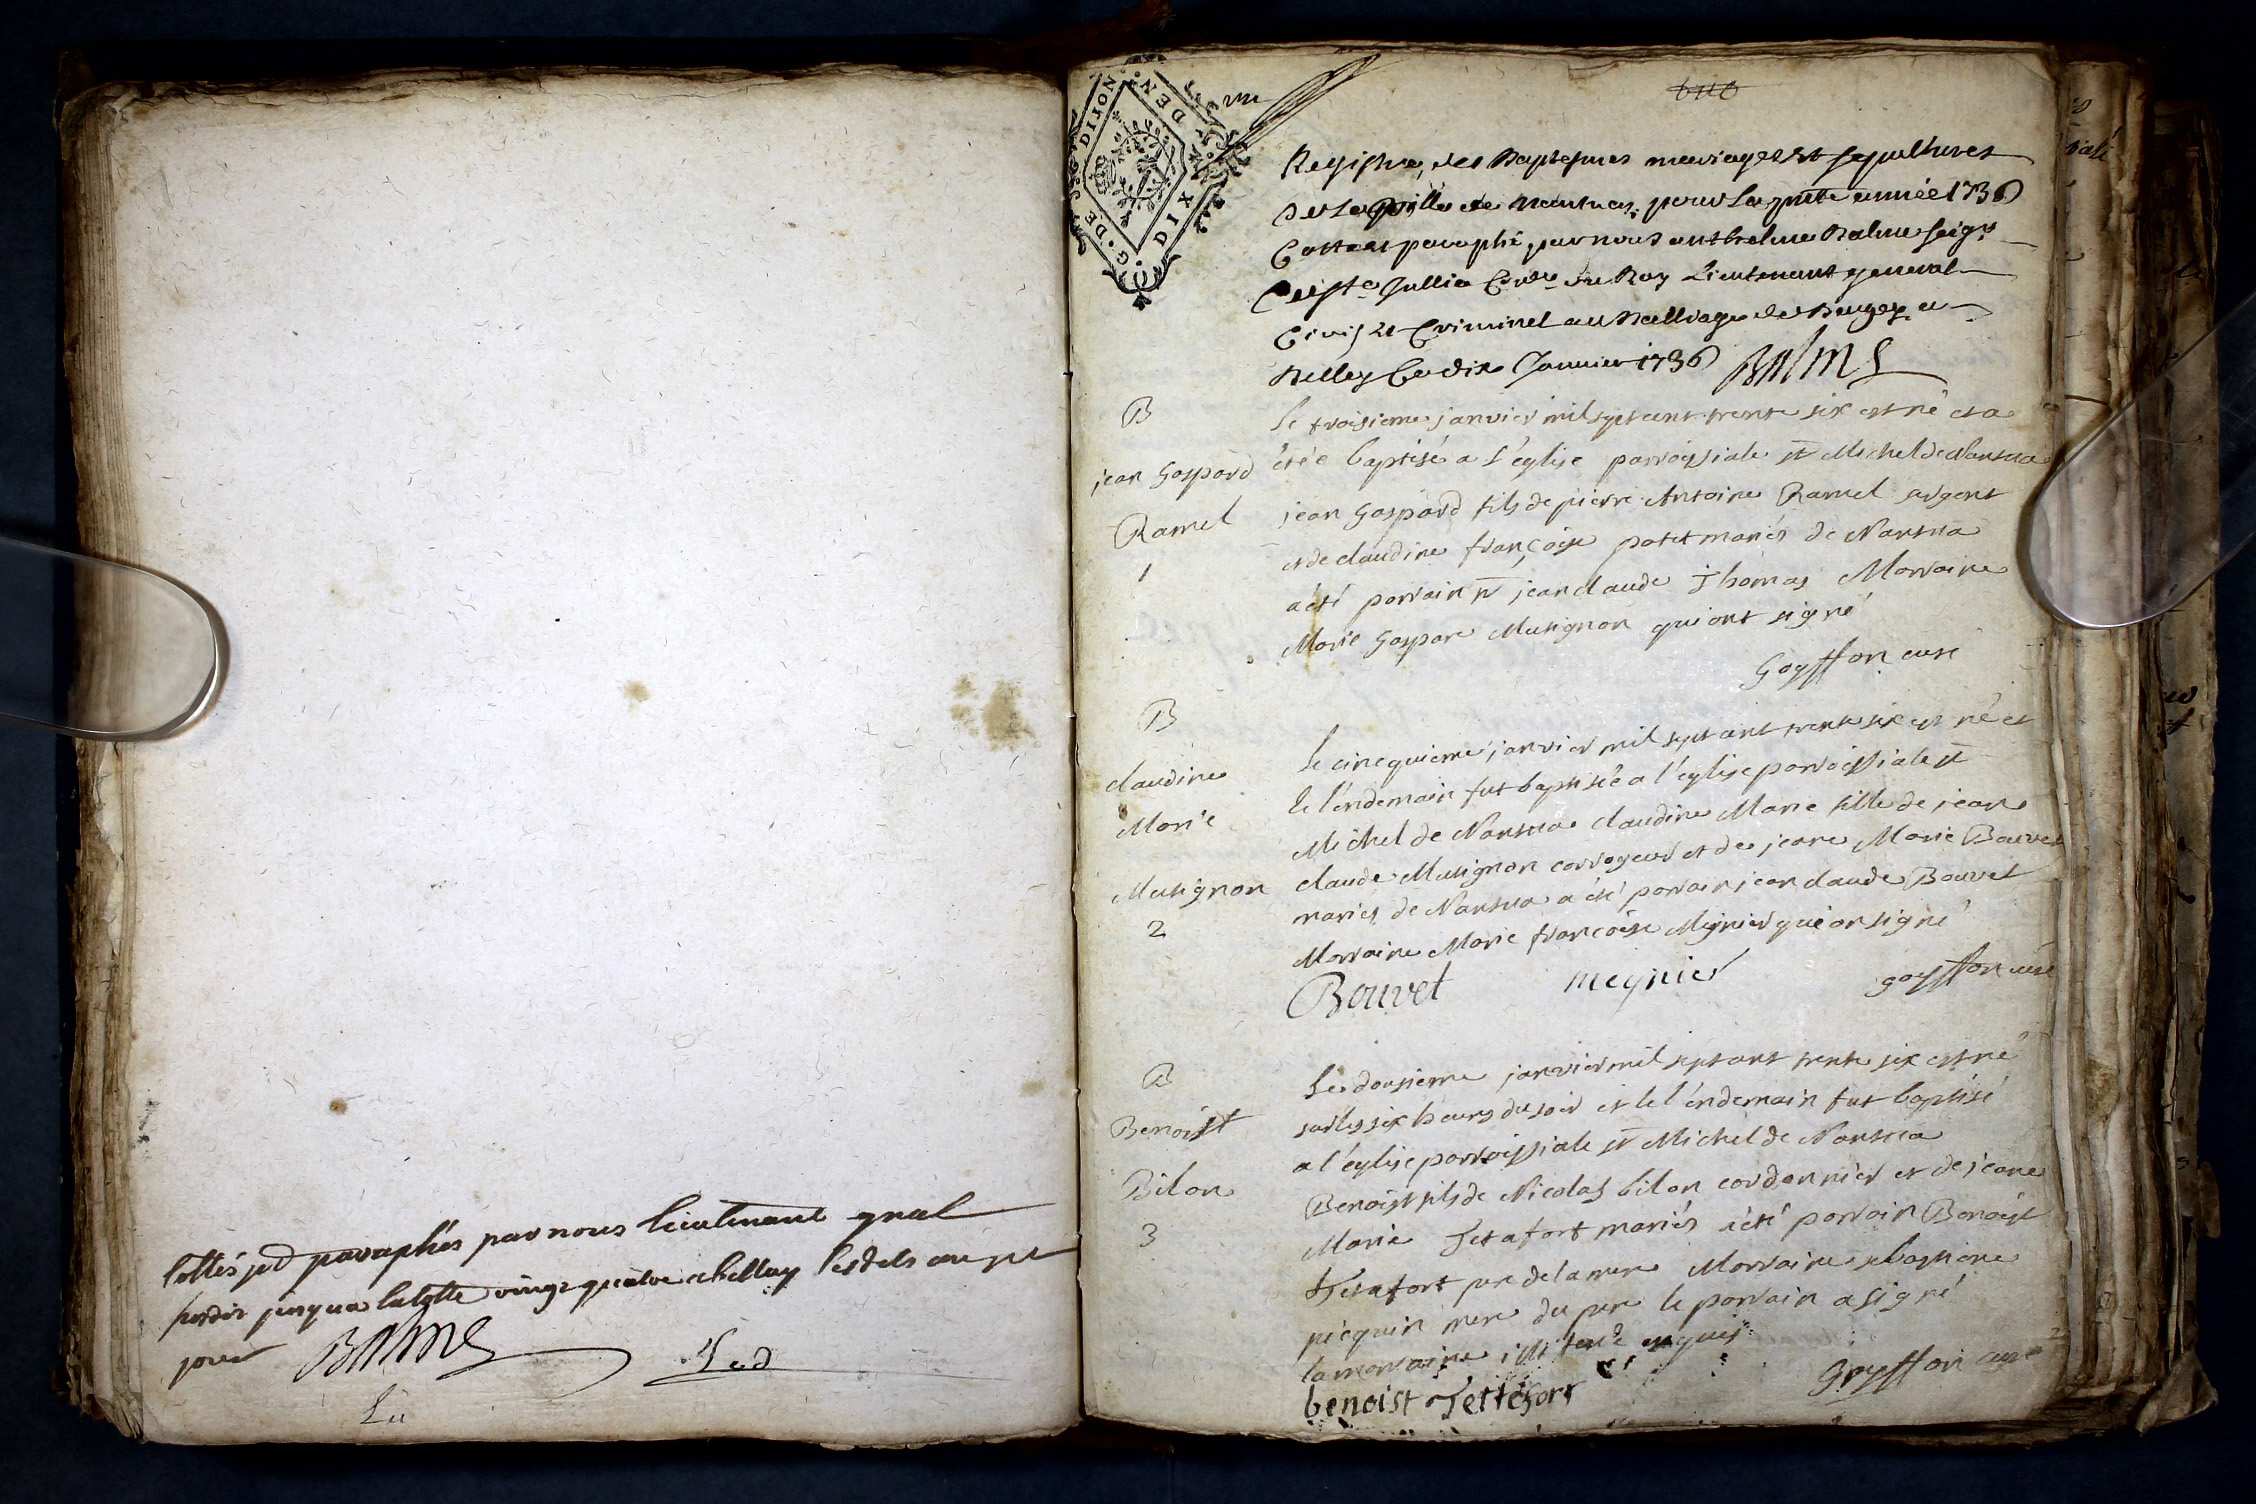 Cottés et paraphés par nous lieutenant gnal
jusqua la cotte vingt quatre a belley les dits an et
jour Balme
G. DE DIJON
DIX DEN.
une
Registre des Baptesmes mariages et sepultures
de la de Nantua, pour la pnte année 1736
Cotte et paraphé, par nous anthelme Balme seigr
de Ste Jullie Coner du Roy Lieutenant general
Civil et Criminel au Balliage de Bugey a
Belley Ce dix Janvier 1736 Balme
B
jean Gaspard
Ramel
1
le troisieme janvier mil sept cent trente six est né et a
été baptisé a l'église parroissiale st Michel de Nantua
jean Gaspard fils de pierre Antoine Ramel
et de claudine françoise mariés de Nantua
a été parrain jean claude Thomas Marraine
Marie Gaspare Musignon qui ont signé
Goyffon curé
B
claudine
Marie
Musignon
2
le cinequieme janvier mil sept cent trente six est né et
le l'endemain fut baptisée a l'église parroissiale st
Michel de Nantua claudine Marie fille de jean
claude Musignon corroyeur et de jeane Marie Bouvet
mariés de Nantua a été parrain jean claude Bouvet
Marraine Marie françoise Megnier qui on signé
Bouvet megnier Goyffon curé
B
Benoist
Bilon
3
le dousieme janvier mil sept cent trente six est né
sur les six heures du soir et le l'endemain fut baptisé
a l'église parroissiale st Michel de Nantua
Benoist fils de Nicolas bilon cordonnier et de jeane
Marie Tetafort mariés a été parrain Benoist
Tetafort pere de la mere Marraine sebastiane
picquin mere du pere le parrain a signé
la marraine enquis
benoist Tettefort Goyffon curé